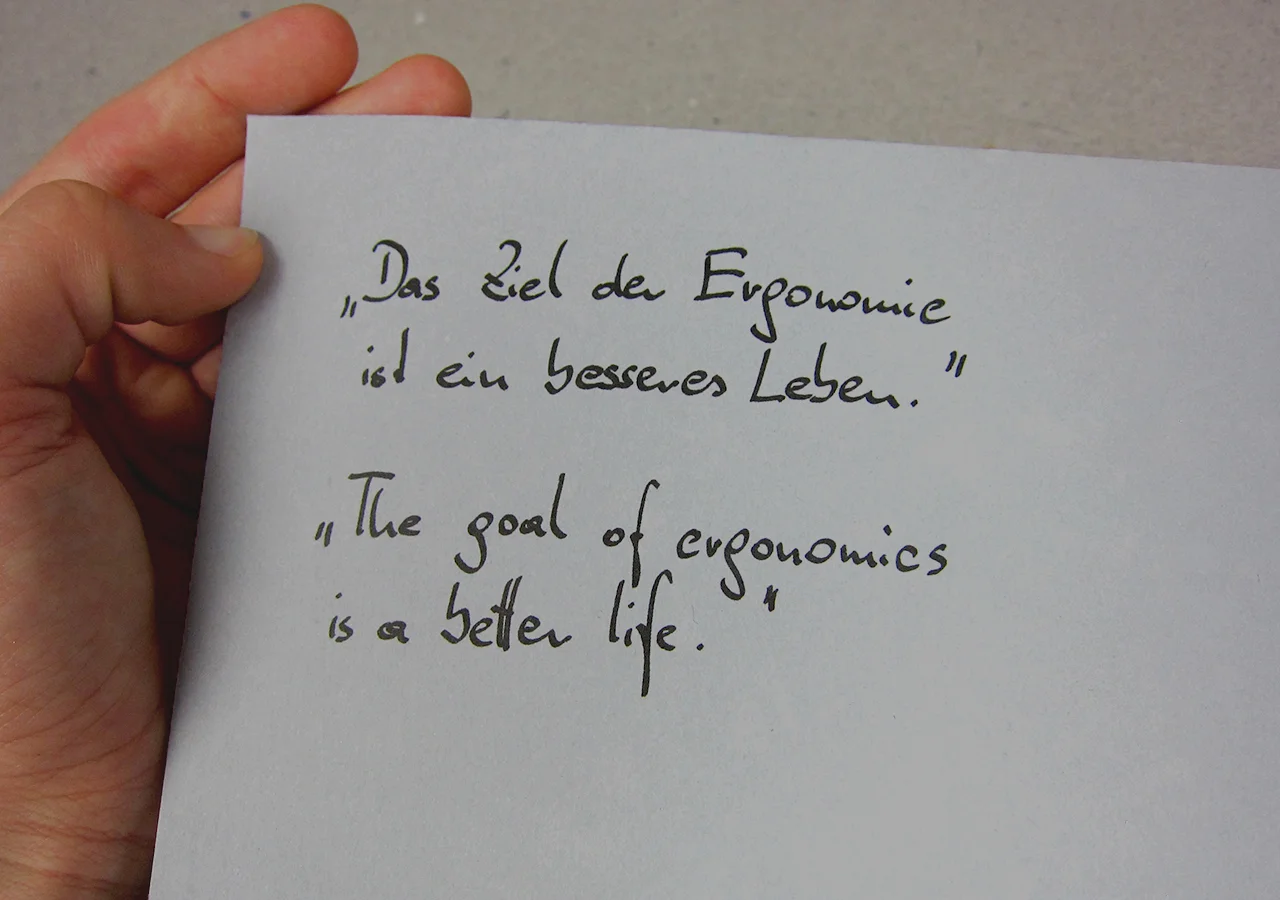 „Das Ziel der Ergonomie
ist ein besseres Leben."
„The goal of ergonomics
is a better life."